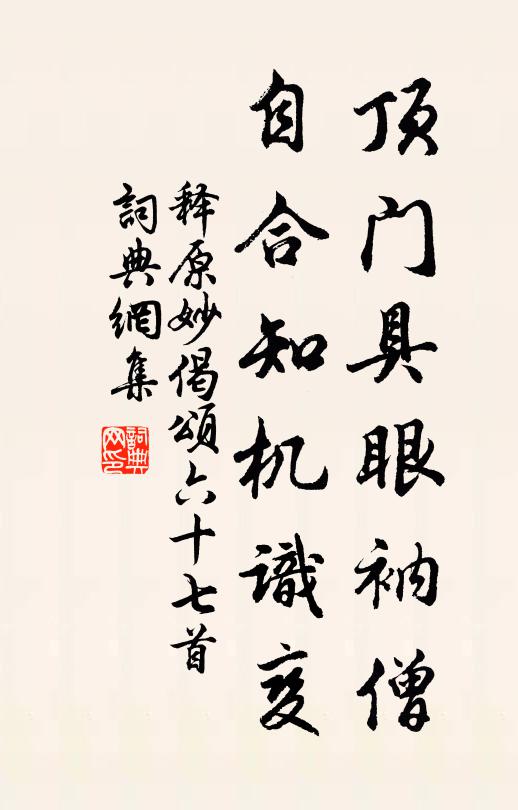 顶门具眼衲僧
自合知机識变
释原妙偈頌六十七首
詞典網集
詞典网印